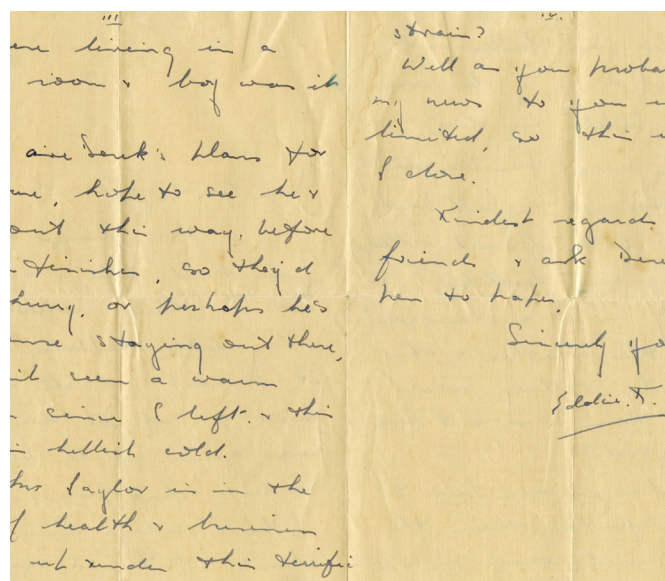 III
ere living in a
room & boy was it
are Derek's plans for
ure, hope to see he &
out this way, before
finishes, so they'd
hurry, or perhaps he's
more staying out there,
n't seen a warm
since I left. & this
is hellish cold.
Mrs Saylor is in the
of health & business
up under this terrific
IV.
strain?
Well as you proba
my news to you is
limited, so this is
I close.
Kindest regards
friends & ask Dere
pen to paper.
Sincerely yo
Eddie. F.